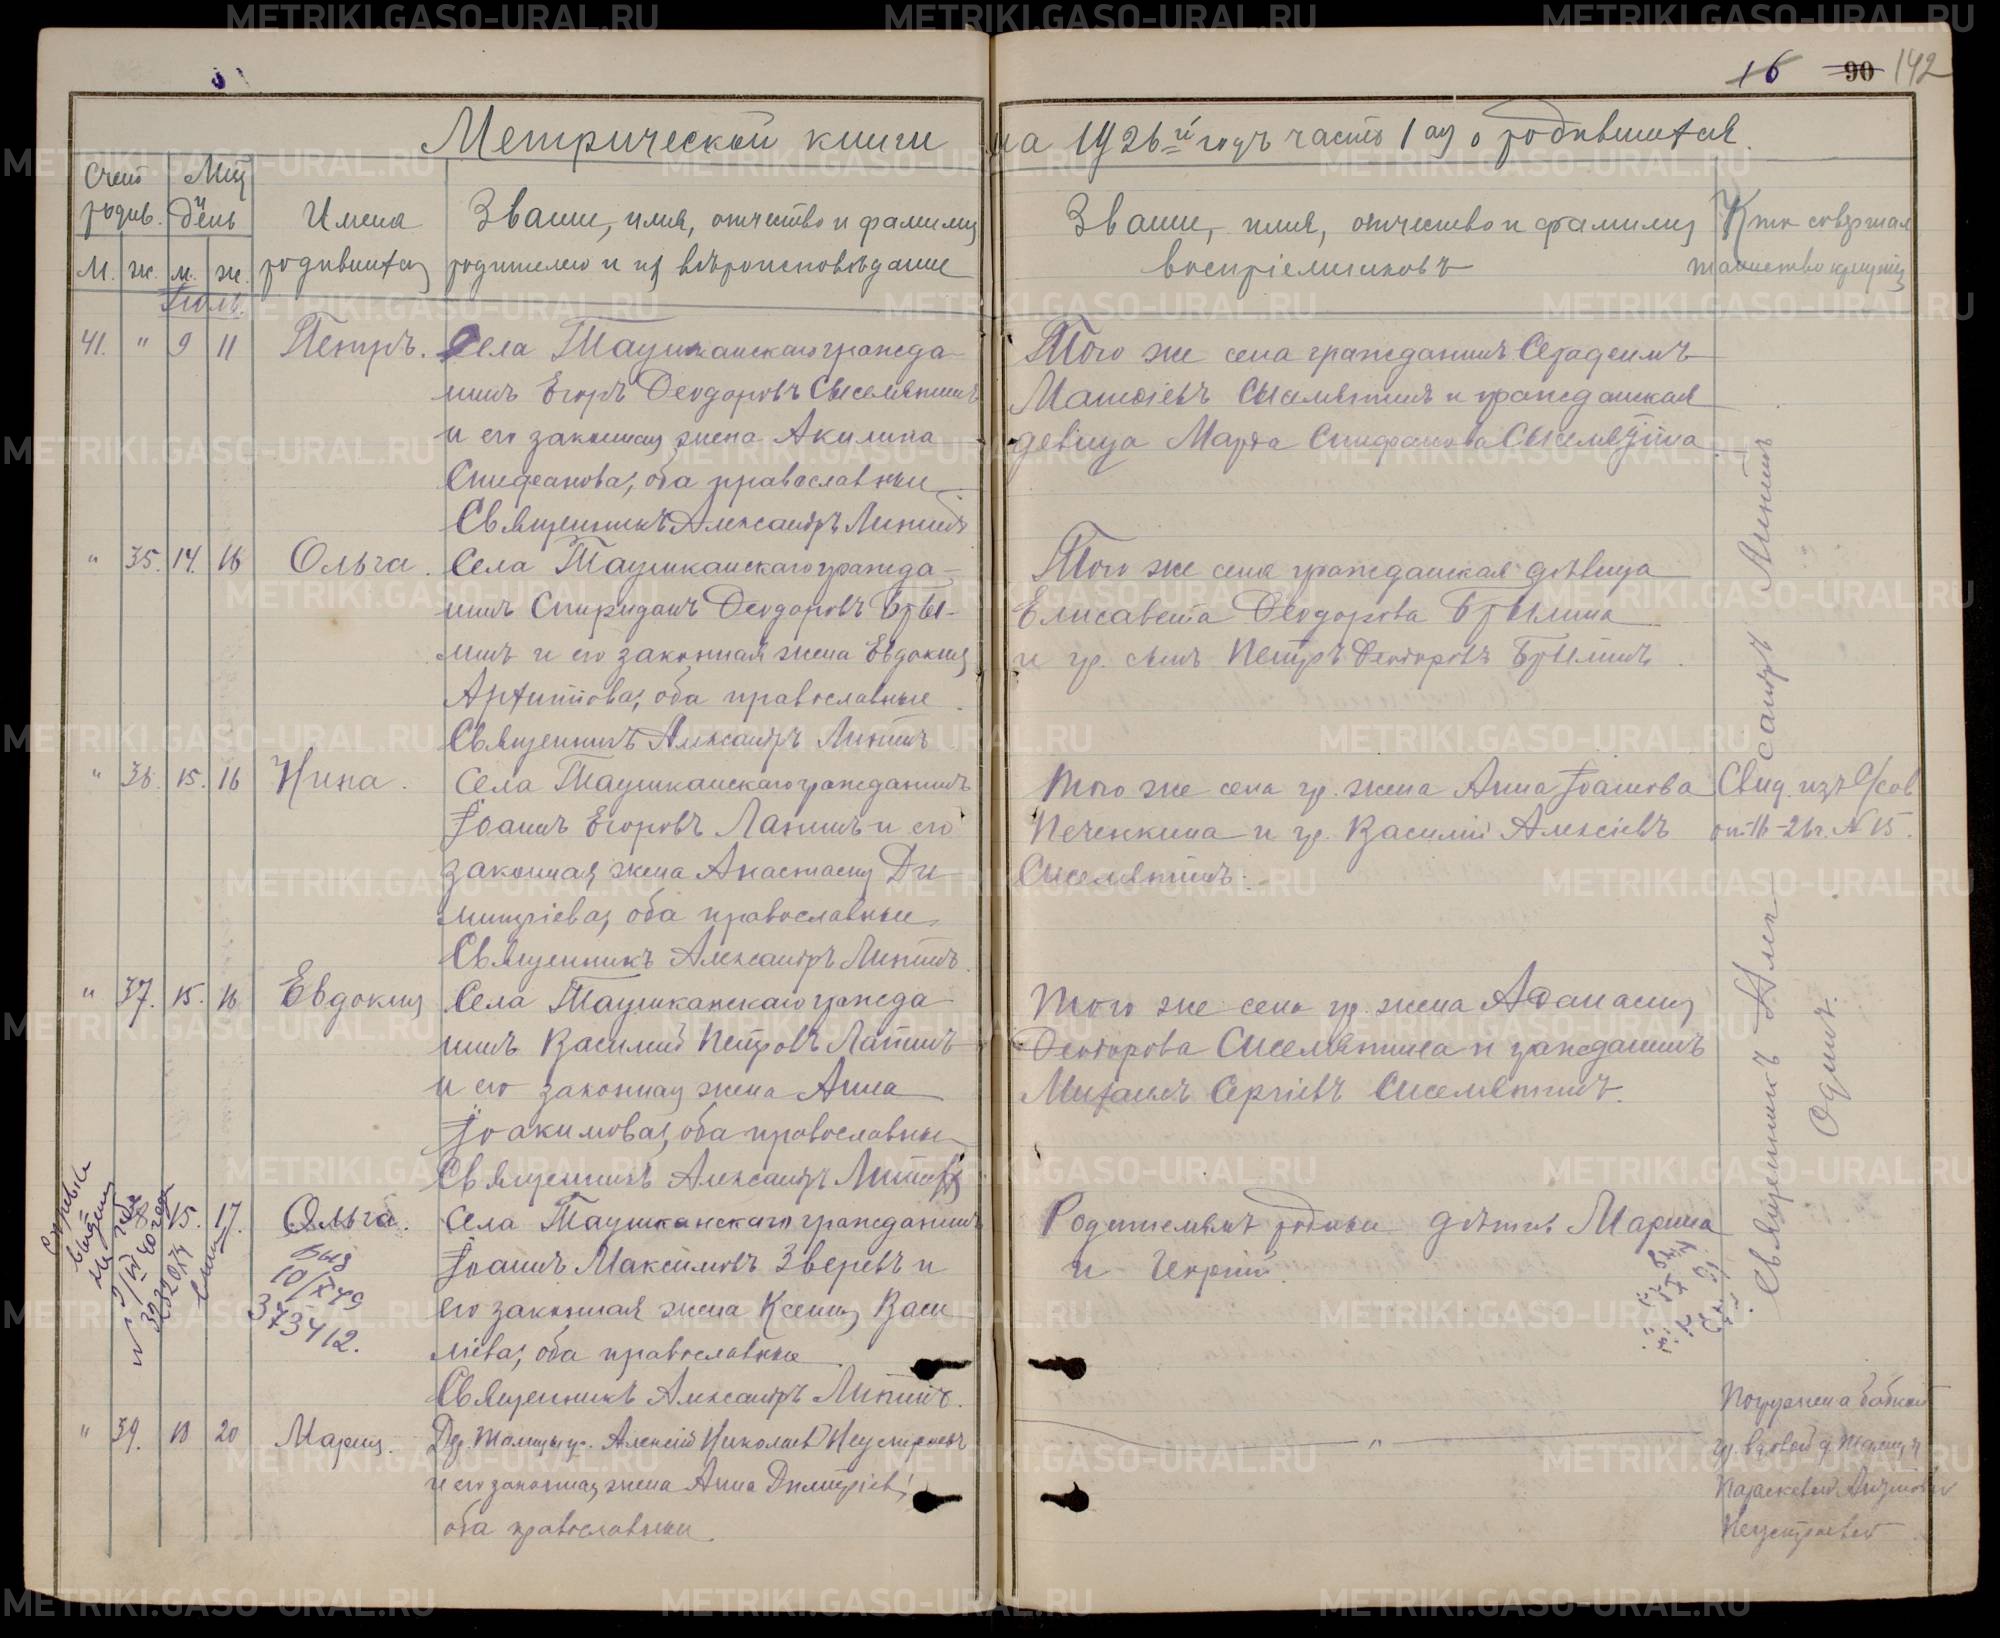 16 90 142
Метрической книги на 1926й годъ часть 1ая о родившихся.
Счетъ родив.
М. ж.
Мѣц и день
м. ж.
Имена
родившихся
Званіе, имя, отчество и фамилія
родителей и ихъ вѣроисповѣданіе
Званіе, имя, отчество и фамилія
воспріемниковъ
Кто совершал
таинство крещенія
Іюль.
41. " 9 11 Петръ.
Села Таушканскаго гражда-
нинъ Егоръ Ѳеодоровъ Сысемятинъ
и его законная жена Акилина
Стефанова, оба православные
Священникъ Александръ Липинъ
Того же села гражданинъ
Сысемятинъ и гражданская
девица Марѳа Стефанова
" 35. 14. 16 Ольга.
Села Таушканскаго гражда-
нинъ Спиридонъ Ѳеодоровъ Бры-
линъ и его законная жена Евдокія
Архиппова, оба православные
Священникъ Александръ Липинъ
Того же села гражданская дѣвица
Елисавета Ѳеодорова Брылина
и гр. сынъ Петръ Ѳеодоровъ Брылинъ.
" 36. 15. 16 Нина.
Села Таушканскаго гражданинъ
Іоаннъ Егоровъ Лапинъ и его
законная жена Анастасія Ди-
митріева, оба православные
Священникъ Александръ Липинъ.
Того же села гр. жена Анна Іоаннова
Печенкина и гр. Василій Алексіевъ
Сысемятинъ.
Свид. изъ
N 15.
" 37. 15. 16 Евдокія
Села Таушканскаго гражда-
нинъ Василий Петровъ Лапинъ
и его законная жена Анна
Іоакимова, оба православные
Священникъ Александръ Липинъ
Того же села гр. жена Аѳанасія
Ѳеодорова Сысемятина и гражданинъ
Михаилъ Сергіевъ Сысемятинъ.
Священникъ Александръ Липинъ
Одинъ.
38 15. 17. Ольга.
Справка
выдана
выд
10/X 49
373412.
Села Таушканскаго гражданинъ
Іоаннъ Максимовъ Зверевъ и
его законная жена Ксенія Васи-
ліева, оба православные
Священникъ Александръ Липинъ.
дѣти Марина
и Георгій.
" 39. 18 20 Марія.
Алексій Николаев Неустроевъ
и его законная жена Анна Димитріев.
оба православные.
"
Погружена бабкой
гр. вдовой д.
Параскевой
Неустроевой